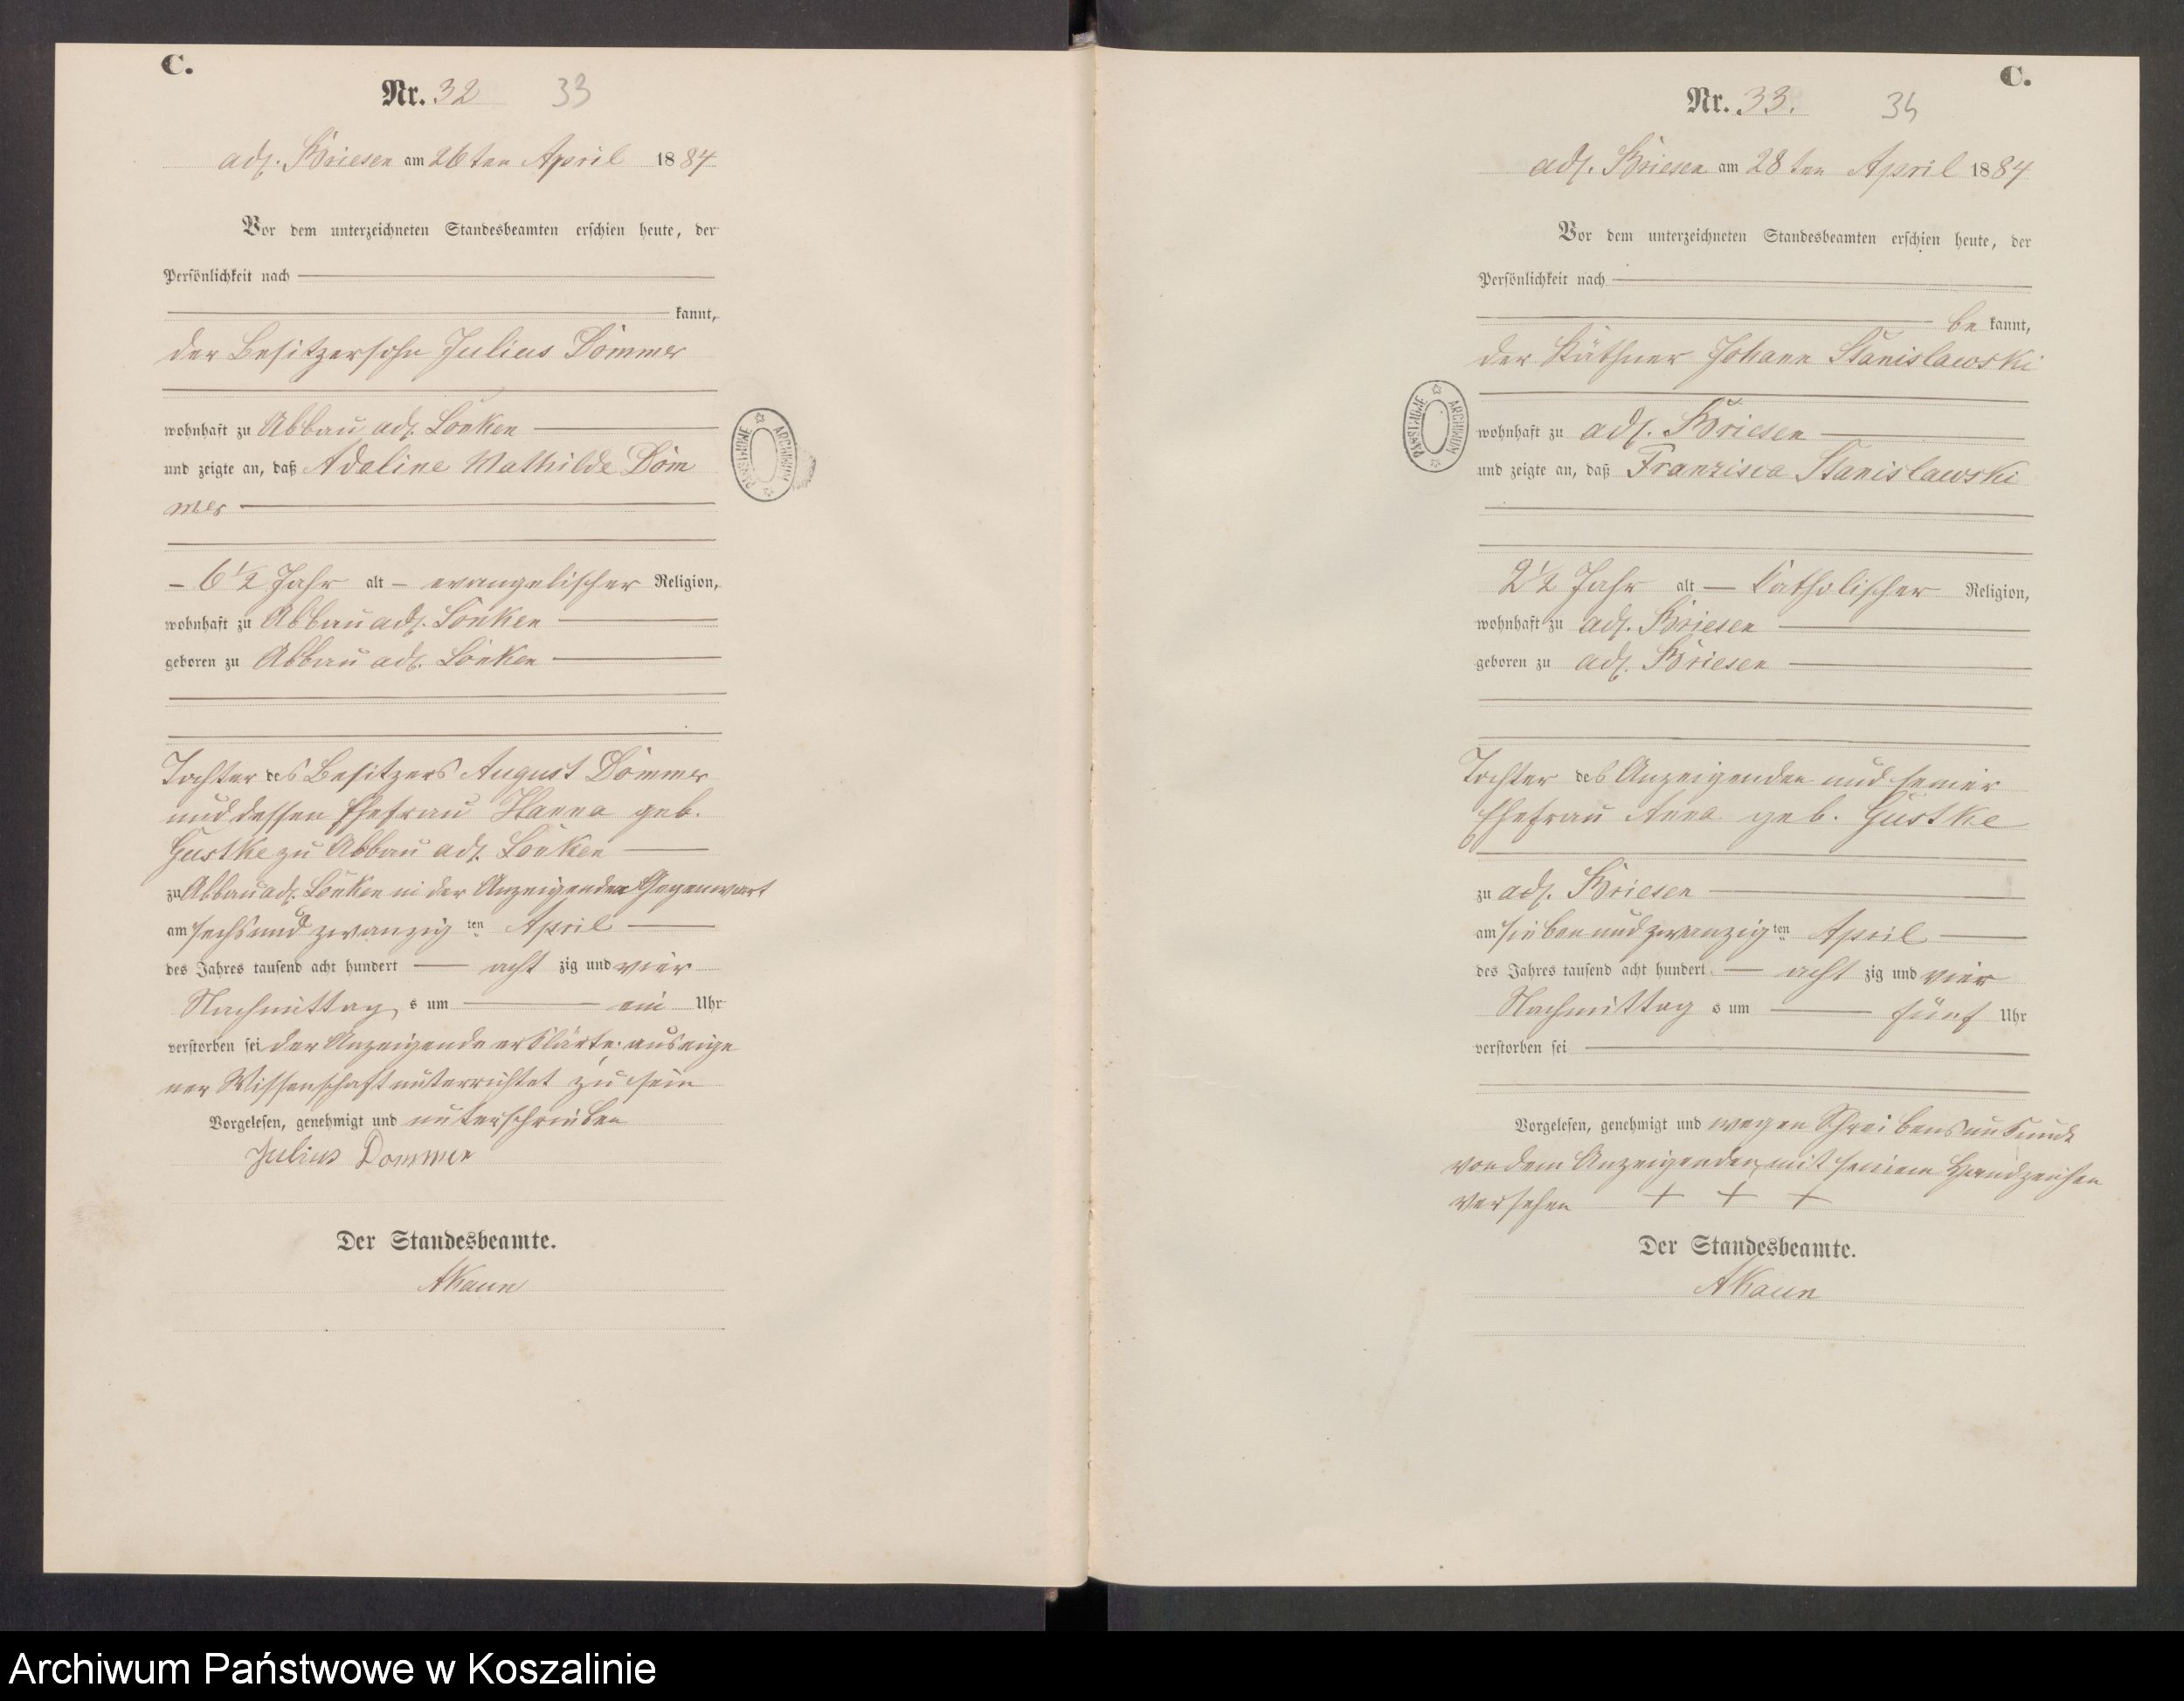 C.
Nr. 32 33
adl. Briesen am 26ten April 1884
Vor dem unterzeichneten Standesbeamten erschien heute, der
Persönlichkeit nach
kannt,
der Besitzersohn Julius Dommer
wohnhaft zu Abbau adl. Lonken
und zeigte an, daß Adaline Mathilde Dom
mer
– 6 1/2 Jahr alt – evangelischer Religion,
wohnhaft zu Abbau adl. Lonken
geboren zu Abbau adl. Lonken
Tochter des Besitzers August Dommer
und dessen Ehefrau Hanna geb.
Gustke zu Abbau adl. Lonken
zu Abbau adl. Lonken in der Anzeigenden Gegenwart
am sechsundzwanzig ten April
des Jahres tausend acht hundert acht zig und vier
Nachmittag s um ein Uhr
verstorben sei der Anzeigende erklärte: aus eige
ner Wissenschaft unterrichtet zu sein
Vorgelesen, genehmigt und unterschrieben
Julius Dommer
Der Standesbeamte.
AKaun
C.
Nr. 33. 34
adl. Briesen am 28ten April 1884
Vor dem unterzeichneten Standesbeamten erschien heute, der
Persönlichkeit nach
be kannt,
der Käthner Johann Stanislawski
wohnhaft zu adl. Briesen
und zeigte an, daß Franzisca Stanislawski
2 1/2 Jahr alt – katholischer Religion,
wohnhaft zu adl. Briesen
geboren zu adl. Briesen
Tochter des Anzeigenden und seiner
Ehefrau Anna geb. Gustke
zu adl. Briesen
am siebenundzwanzig ten April
des Jahres tausend acht hundert acht zig und vier
Nachmittag s um fünf Uhr
verstorben sei
Vorgelesen, genehmigt und wegen Schreibensunkunde
von dem Anzeigenden mit seinem Handzeichen
versehen + + +
Der Standesbeamte.
AKaun
ARCHIWUM PAŃSTWOWE
ARCHIWUM PAŃSTWOWE
Archiwum Państwowe w Koszalinie